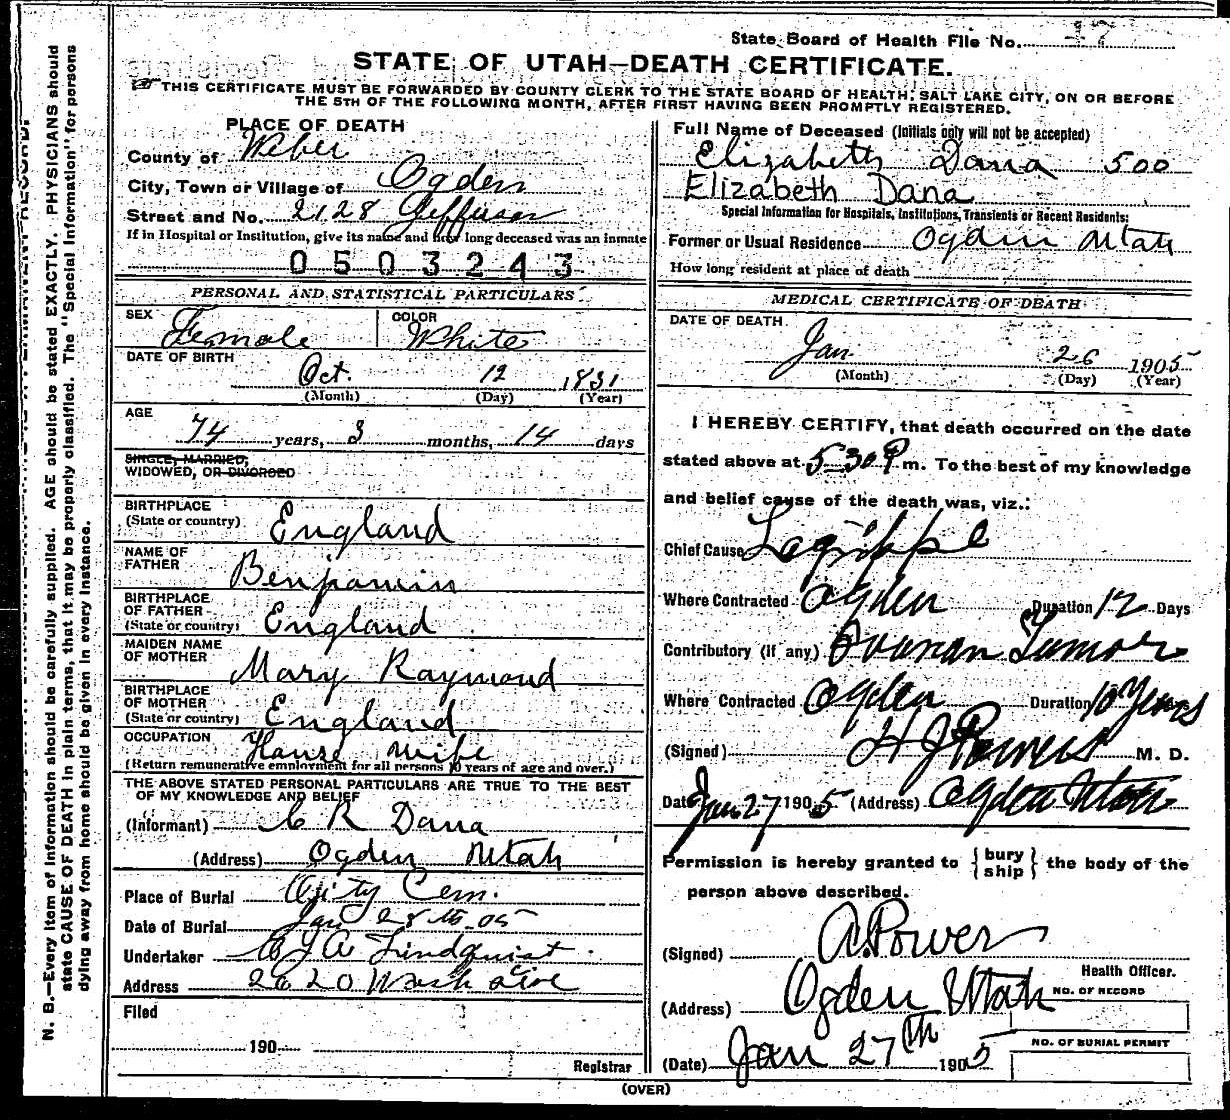 State Board of Health File No. 17
STATE OF UTAH—DEATH CERTIFICATE.
THIS CERTIFICATE MUST BE FORWARDED BY COUNTY CLERK TO THE STATE BOARD OF HEALTH, SALT LAKE CITY, ON OR BEFORE
THE 5TH OF THE FOLLOWING MONTH, AFTER FIRST HAVING BEEN PROMPTLY REGISTERED.
N. B.—Every item of information should be carefully supplied. AGE should be stated EXACTLY. PHYSICIANS should
state CAUSE OF DEATH in plain terms, that it may be properly classified. The "Special Information" for persons
dying away from home should be given in every instance.
PLACE OF DEATH
County of Weber
City, Town or Village of Ogden
Street and No. 2128 Jefferson
If in Hospital or Institution, give its name and how long deceased was an inmate
0503243
PERSONAL AND STATISTICAL PARTICULARS
SEX Female COLOR White
DATE OF BIRTH
Oct. 12 1831
(Month) (Day) (Year)
AGE
74 years, 3 months, 14 days
SINGLE, MARRIED,
WIDOWED, OR DIVORCED
BIRTHPLACE
(State or country) England
NAME OF
FATHER Benjamin
BIRTHPLACE
OF FATHER
(State or country) England
MAIDEN NAME
OF MOTHER Mary Raymond
BIRTHPLACE
OF MOTHER
(State or country) England
OCCUPATION House wife
(Return remunerative employment for all persons 10 years of age and over.)
THE ABOVE STATED PERSONAL PARTICULARS ARE TRUE TO THE BEST
OF MY KNOWLEDGE AND BELIEF
(Informant) C R Dana
(Address) Ogden Utah
Place of Burial City Cem.
Date of Burial Jan 28th 05
Undertaker Lindquist
Address 2620 Wash Ave
Filed
190
Registrar
Full Name of Deceased (Initials only will not be accepted)
Elizabeth Dana 500
Elizabeth Dana
Special Information for Hospitals, Institutions, Transients or Recent Residents:
Former or Usual Residence Ogden Utah
How long resident at place of death
MEDICAL CERTIFICATE OF DEATH
DATE OF DEATH
Jan. 26 1905
(Month) (Day) (Year)
I HEREBY CERTIFY, that death occurred on the date
stated above at 5-30 P m. To the best of my knowledge
and belief cause of the death was, viz.:
Chief Cause Lagrippe
Where Contracted Ogden Duration 12 Days
Contributory (if any) Ovarian Tumor
Where Contracted Ogden Duration 10 Years
(Signed) H J Powers M. D.
Date Jan 27 1905 (Address) Ogden Utah
Permission is hereby granted to { bury ship } the body of the
person above described.
(Signed) A. Power
Health Officer.
(Address) Ogden Utah
NO. OF RECORD
(Date) Jan 27th 1905
NO. OF BURIAL PERMIT
(OVER)